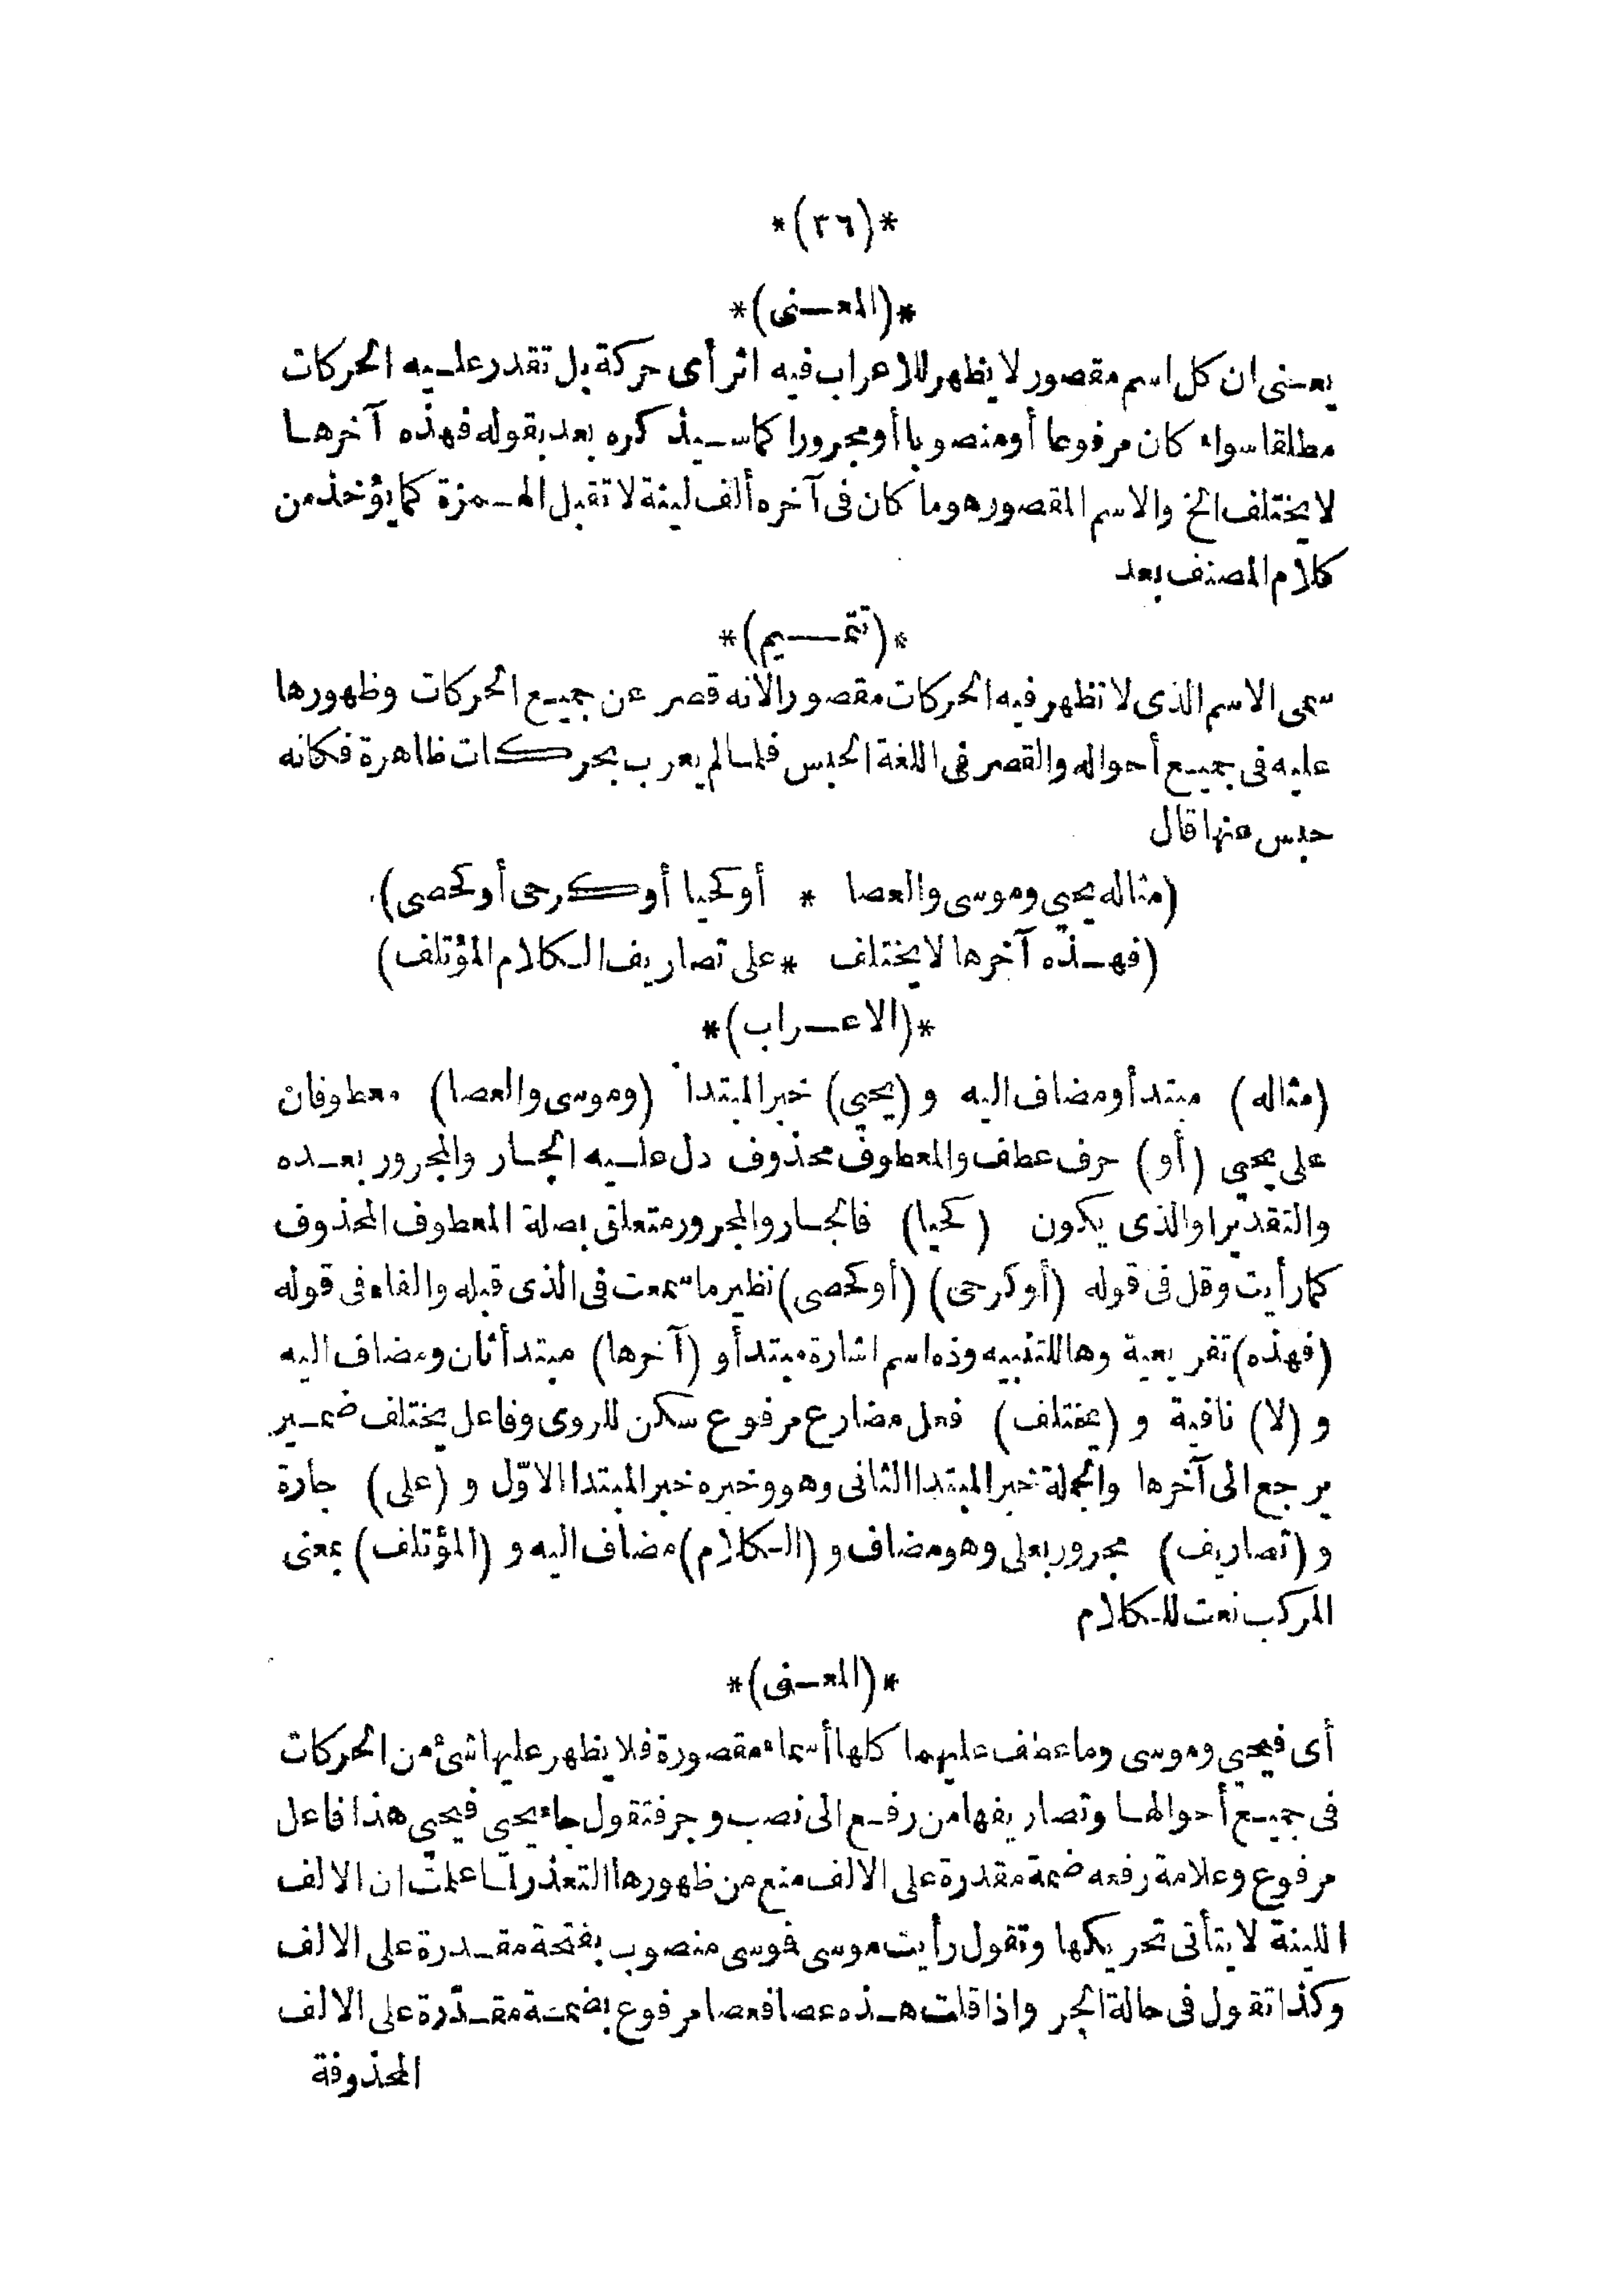 *(٣٦)*
*(المعنى)*
يعنى ان كل اسم مقصور لا يظهر للاعراب فيه اثر أى حركة بل تقدر عليه الحركات
مطلقا سواء كان مرفوعا أو منصوبا أو مجرورا كما سيذكره بعد بقوله فهذه آخرها
لا يختلف الخ والاسم المقصور هو ما كان فى آخره ألف لينة لا تقبل الهمزة كما يؤخذ من
كلام المصنف بعد
*(تتميم)*
سمى الاسم الذى لا تظهر فيه الحركات مقصورا لانه قصر عن جميع الحركات وظهورها
عليه فى جميع أحواله والقصر فى اللغة الحبس فلما لم يعرب بحركات ظاهرة فكانه
حبس عنها قال
(مثاله يحيى وموسى والعصا * أو كحيا أو كرحى أو كحصى)
(فهذه آخرها لا يختلف * على تصاريف الكلام المؤتلف)
*(الاعراب)*
(مثاله) مبتدأ ومضاف اليه و (يحيى) خبر المبتدا (وموسى والعصا) معطوفان
على يحيى (أو) حرف عطف والمعطوف محذوف دل عليه الجار والمجرور بعده
والتقدير اوالذى يكون (كحيا) فالجار والمجرور متعلق بصلة المعطوف المحذوف
كما رأيت وقل فى قوله (أو كرحى) (أو كحصى) نظير ما سمعت فى الذى قبله والفاء فى قوله
(فهذه) تفريعية وها للتنبيه وذه اسم اشارة مبتدأ و (آخرها) مبتدأ ثان ومضاف اليه
و (لا) نافية و (يختلف) فعل مضارع مرفوع سكن للروى وفاعل يختلف ضمير
يرجع الى آخرها والجملة خبر المبتدا الثانى وهو وخبره خبر المبتدا الاوّل و (على) جارة
و (تصاريف) مجرور بعلى وهو مضاف و (الكلام) مضاف اليه و (المؤتلف) بمعنى
المركب نعت للكلام
*(المعنى)*
أى فيحيى وموسى وما عطف عليهما كلها أسماء مقصورة فلا يظهر عليها شئ من الحركات
فى جميع أحوالها وتصاريفها من رفع الى نصب وجر فتقول جاء يحيى فيحيى هذا فاعل
مرفوع وعلامة رفعه ضمة مقدرة على الالف منع من ظهورها التعذر لما علمت ان الالف
اللينة لا يتأتى تحريكها وتقول رأيت موسى فموسى منصوب بفتحة مقدرة على الالف
وكذا تقول فى حالة الجر واذا قلت هذه عصا فعصا مرفوع بضمة مقدّرة على الالف
المحذوفة